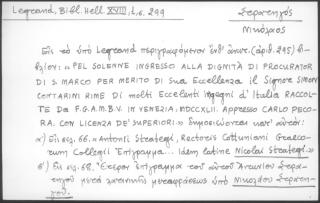 Legrand, Bibl. Hell XVIII, t, 6. 299
Στρατηγός
Νικόλαος
Εἰς τὸ ὑπὸ Legrand περιγραφόμενον ὑπ' ἀριθ. (ἀριθ. 295) βι-
βλίον: «PEL SOLENNE INGRESSO ALLA DIGNITÀ DI PROCURATOR
DI S. MARCO PER MERITO DI Sua Eccellenza il Signore SIMON
CONTARINI RIME DI molti Eccellenti ingegni d'Italia RACCOL-
TE Da F.G.A.M.B.V. IN VENEZIA, MDCCXLII. APPRESSO CARLO PECO-
RA. CON LICENZA DE' SUPERIORI.» δημοσιεύονται
α') Εἰς σελ. 66. «Antonii Strategi, Rectoris Cottuniani Graeco-
rum Collegii Ἐπίγραμμα... Idem latine Nicolai Strategi.»
β') Εἰς σελ. 68. Ἕτερον ἐπίγραμμα τοῦ αὐτοῦ Ἀντωνίου Στρα-
τηγοῦ μετὰ λατινικῆς μεταφράσεως ὑπὸ Νικολάου Στρατη-
γοῦ.